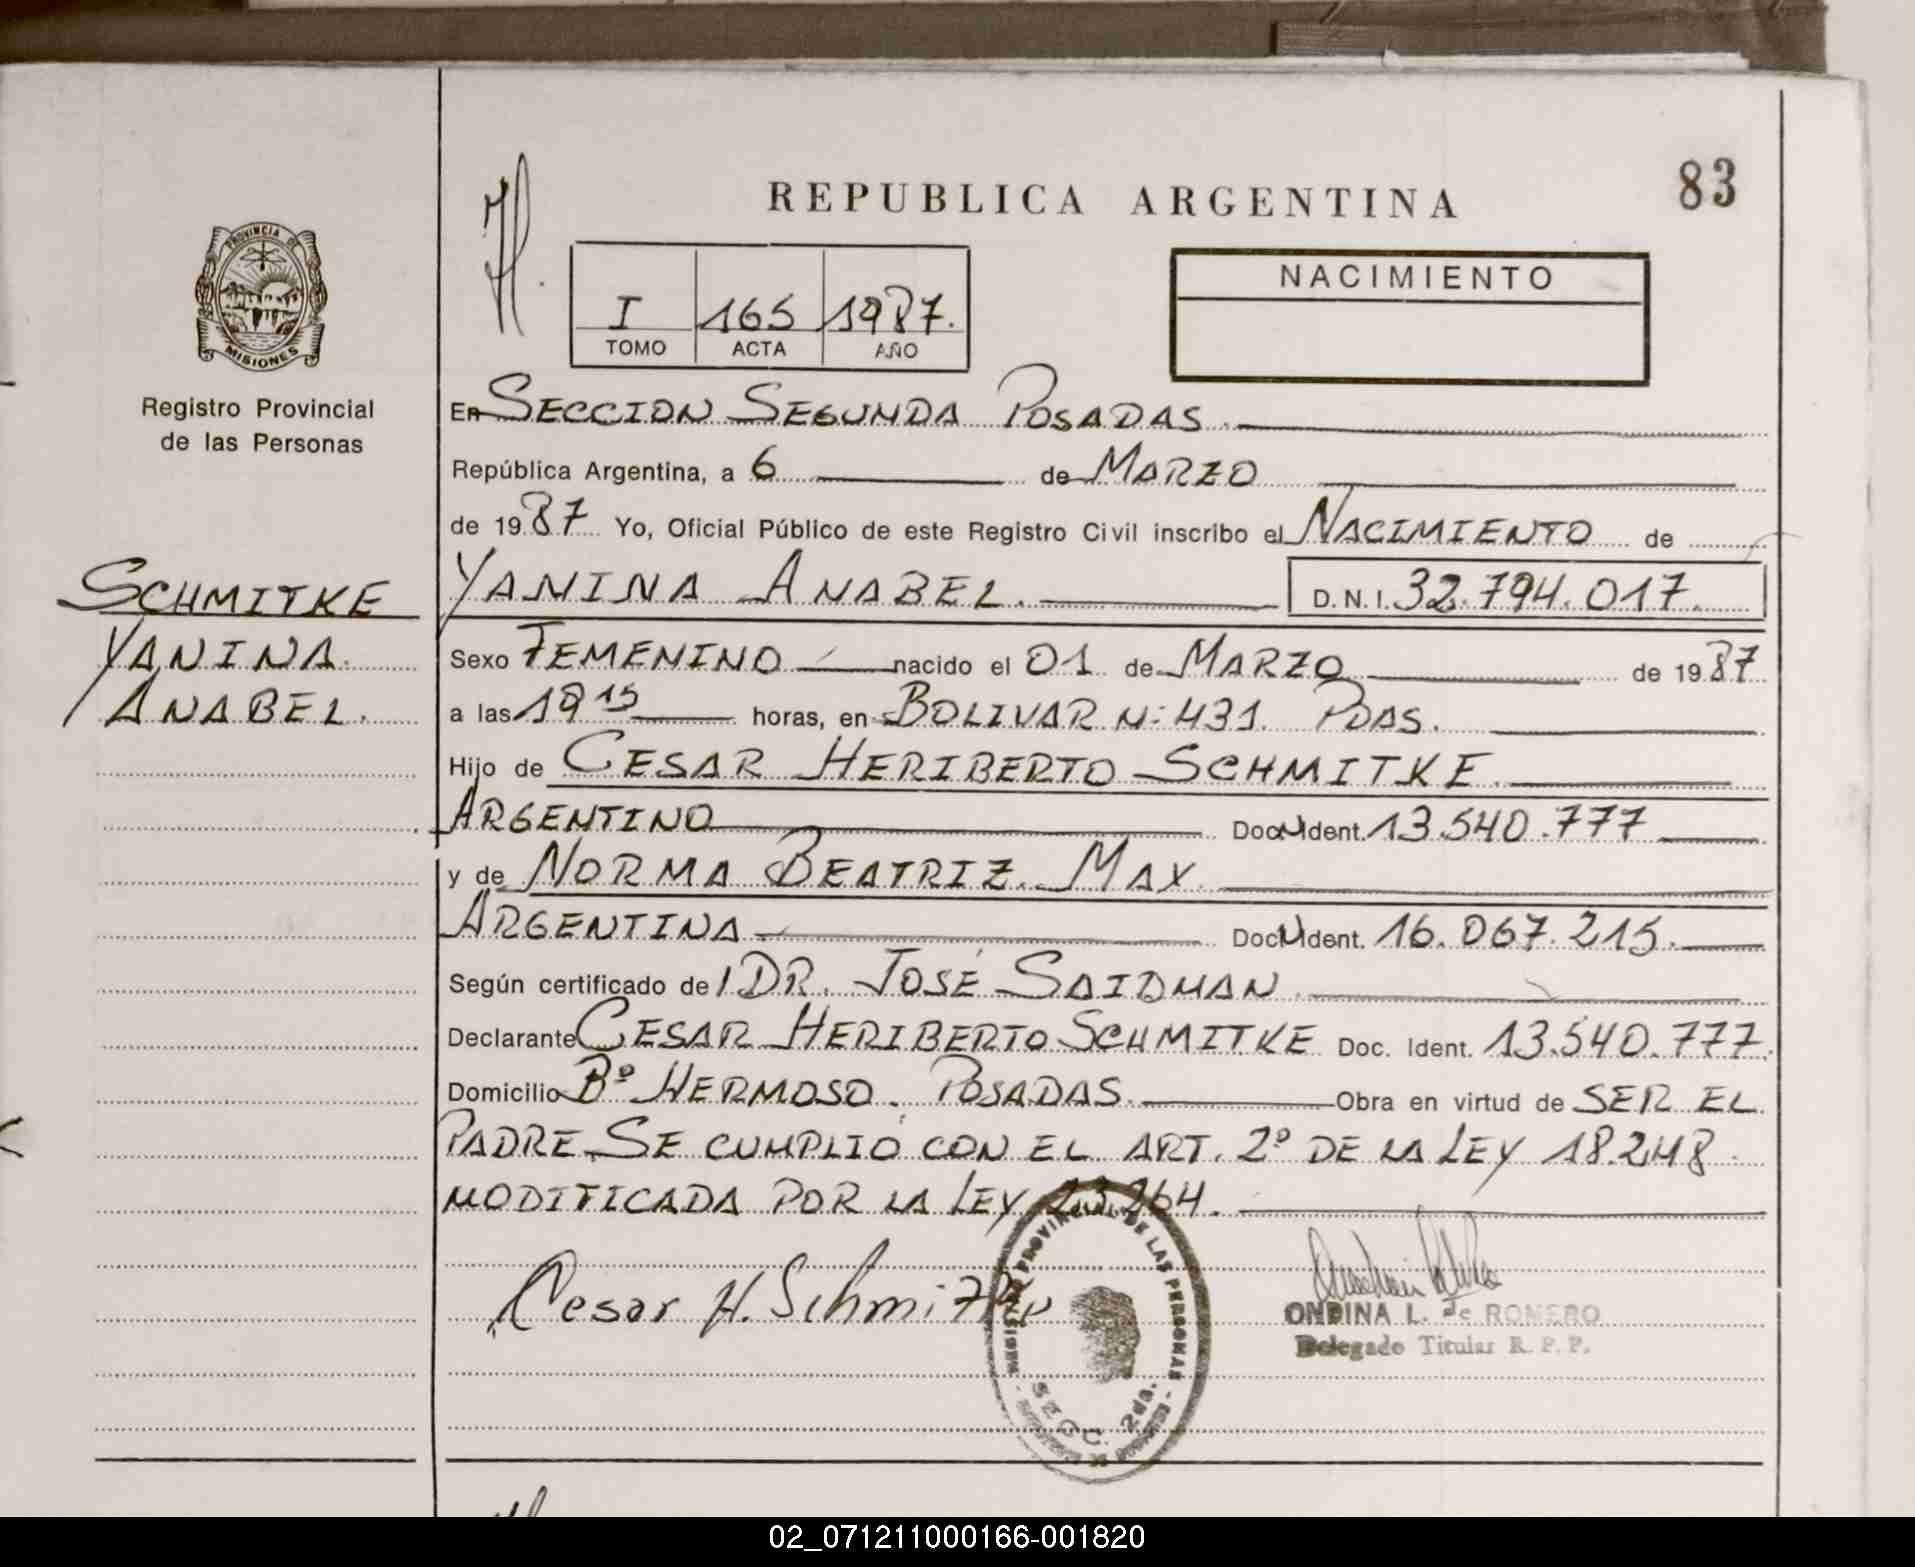 83
REPUBLICA ARGENTINA
PROVINCIA DE
MISIONES
Registro Provincial
de las Personas
I 165 1987.
TOMO ACTA AÑO
NACIMIENTO
En SECCION SEGUNDA POSADAS.
República Argentina, a 6 de MARZO
de 1987 Yo, Oficial Público de este Registro Civil inscribo el NACIMIENTO de
YANINA ANABEL. D.N.I. 32.794.017.
SCHMITKE
YANINA
ANABEL.
Sexo FEMENINO nacido el 01 de MARZO de 1987
a las 19 15 horas, en BOLIVAR N: 431. PDAS.
Hijo de CESAR HERIBERTO SCHMITKE.
ARGENTINO Doc. Ident. 13.540.777
y de NORMA BEATRIZ. MAX
ARGENTINA Doc. Ident. 16.067.215.
Según certificado de DR. JOSÉ SAIDMAN.
Declarante CESAR HERIBERTO SCHMITKE Doc. Ident. 13.540.777.
Domicilio Bº HERMOSO. POSADAS. Obra en virtud de SER EL
PADRE. SE CUMPLIÓ CON EL ART. 2º DE LA LEY 18.248
MODIFICADA POR LA LEY 23.264.
Cesar H. Schmitke
PROVINCIAL DE LAS PERSONAS
SECC. 2da.
ONDINA L. de ROMERO
Delegado Titular R. P. P.
02_071211000166-001820